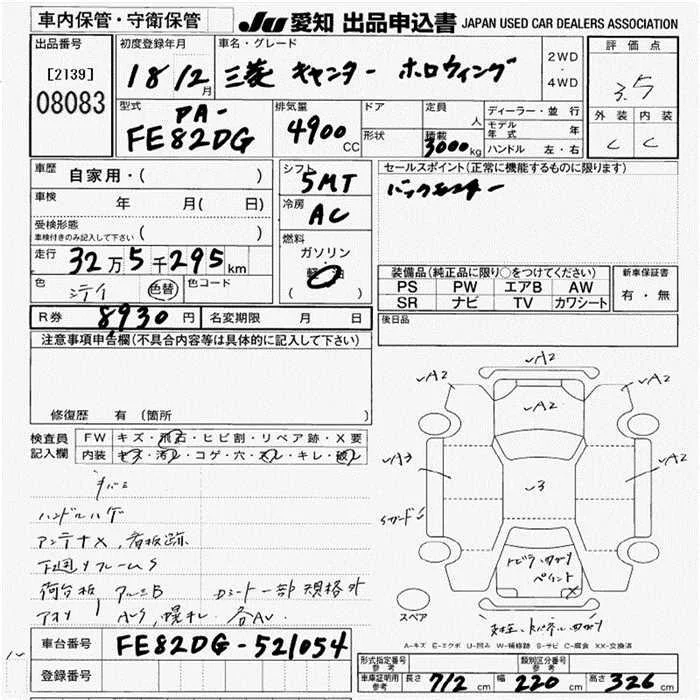 車内保管・守衛保管
JU 愛知 出品申込書 JAPAN USED CAR DEALERS ASSOCIATION
出品番号
[2139]
08083
初度登録年月
18 12月
車名・グレード
三菱 キャンター ホロウィング
2WD
・
4WD
評価点
3.5
外装 内装
C C
型式
PA-
FE82DG
排気量
4900 CC
ドア
形状
定員
人
積載
3000 kg
ディーラー・並行
モデル年式 年
ハンドル 左・右
車歴
自家用・( )
車検
年 月( 日)
受検形態
車検付きのみ記入して下さい ( )
走行
32万5千295km
色
シテイ
色替
色コード
シフト
5MT
冷房
AC
燃料
ガソリン
・
軽油
( )
セールスポイント(正常に機能するものに限ります)
バックモニター
装備品(純正品に限り○をつけてください)
PS PW エアB AW
SR ナビ TV カワシート
新車保証書
有・無
R券 8930円 名変期限 月 日
後日品
注意事項申告欄(不具合内容等は具体的に記入して下さい)
修復歴 有(箇所 )
検査員
記入欄
FW キズ・飛石・ヒビ割・リペア跡・X要
内装 キズ・汚レ・コゲ・穴・スレ・キレ・破レ
ハンドルハゲ
アンテナX、看板跡
下廻りフレームS
荷台板 アルミB
規格外
各AU
A2
A2
A2
A3
A2
3
スペア
A-キズ E-エクボ U-凹み W-補修跡 S-サビ C-腐食 XX-交換済
車台番号 FE82DG-521054
登録番号
形式指定番号
参考
類別区分番号
参考
車庫証明用
参考
長さ 712 cm 幅 220 cm 高さ 326 cm